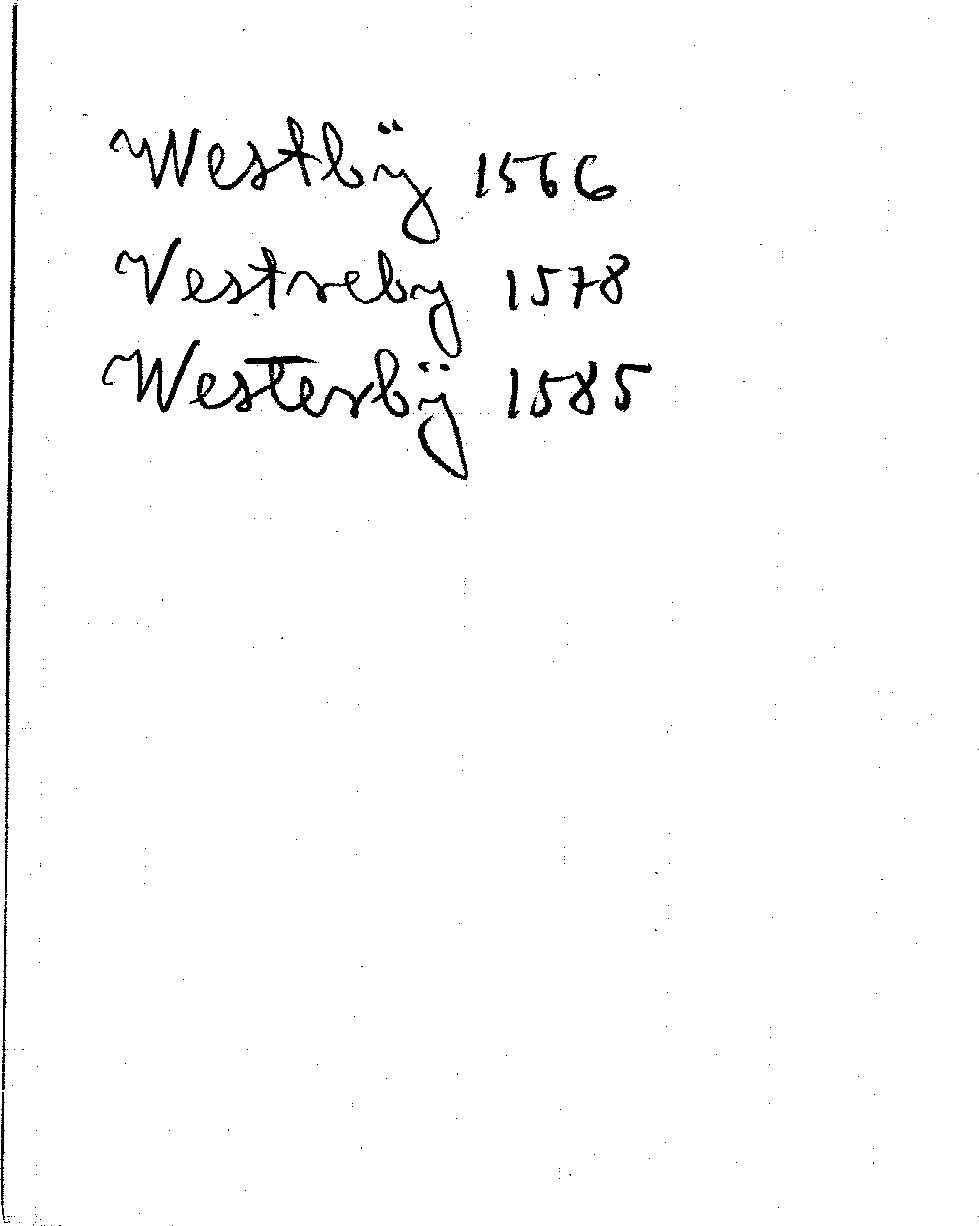 Westbÿ 1566
Vestreby 1578
Westerbÿ 1585